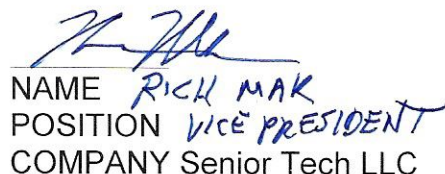 NAME RICH MAK
POSITION VICE PRESIDENT
COMPANY Senior Tech LLC